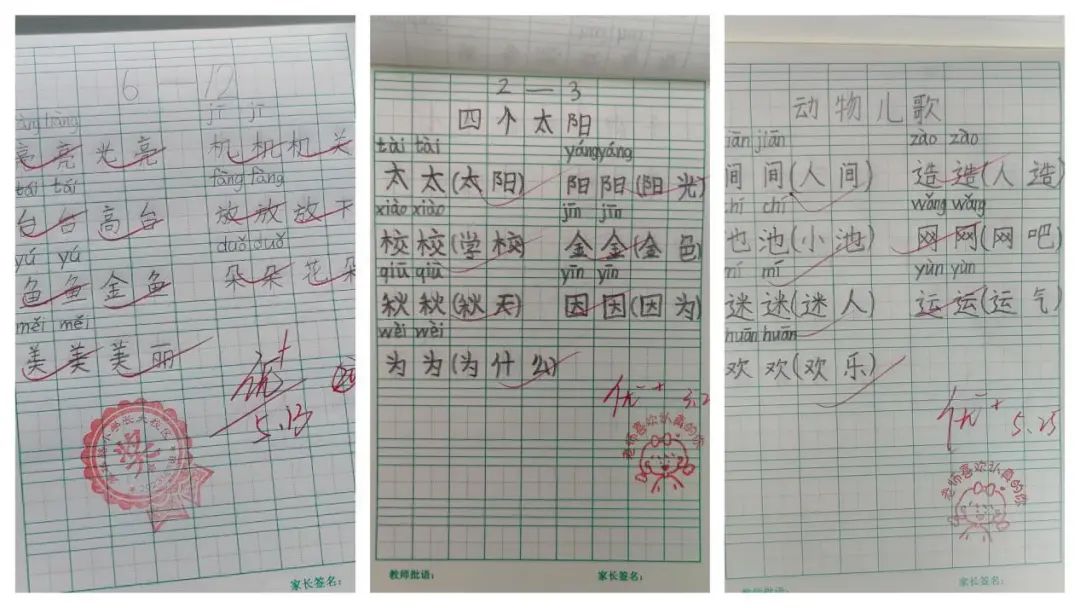 6—12
liàng jī jī
亮亮光亮 机机机关
tái tái fàng fàng
台台高台 放放放下
yú yú duǒ duǒ
鱼鱼金鱼 朵朵花朵
měi měi
美美美丽
优+
5.13
家长签名：
2—3
四个太阳
tài tài yángyáng
太太(太阳) 阳阳(阳光)
xiào xiào jīn jīn
校校(学校) 金金(金色)
qiū qiū yīn yīn
秋秋(秋天) 因因(因为)
wèi wèi
为为(为什么)
优-+
老师喜欢认真的你
教师批语： 家长签名：
动物儿歌
jiān zào zào
间间(人间) 造造(人造)
chí wǎng wǎng
池池(小池) 网网(网吧)
mí yùn yùn
迷迷(迷人) 运运(运气)
huān huān
欢欢(欢乐)
优-+ 5.25
老师喜欢认真的你
教师批语： 家长签名：